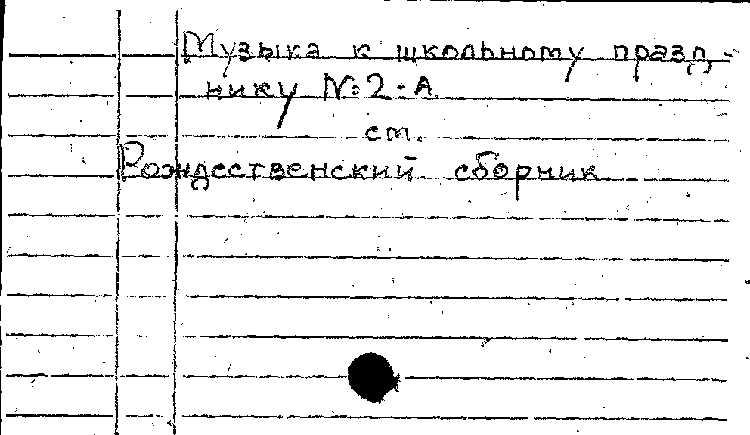 Музыка к школьному празд-
нику №2-А
ст.
Рождественский сборник